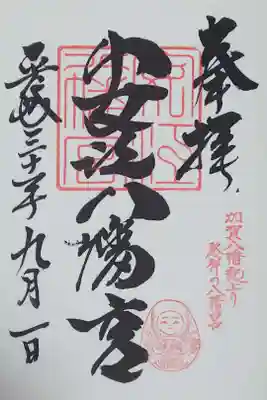 奉拝
加賀八幡起上り
発祥の八幡宮
安江八幡宮
平成三十年九月一日